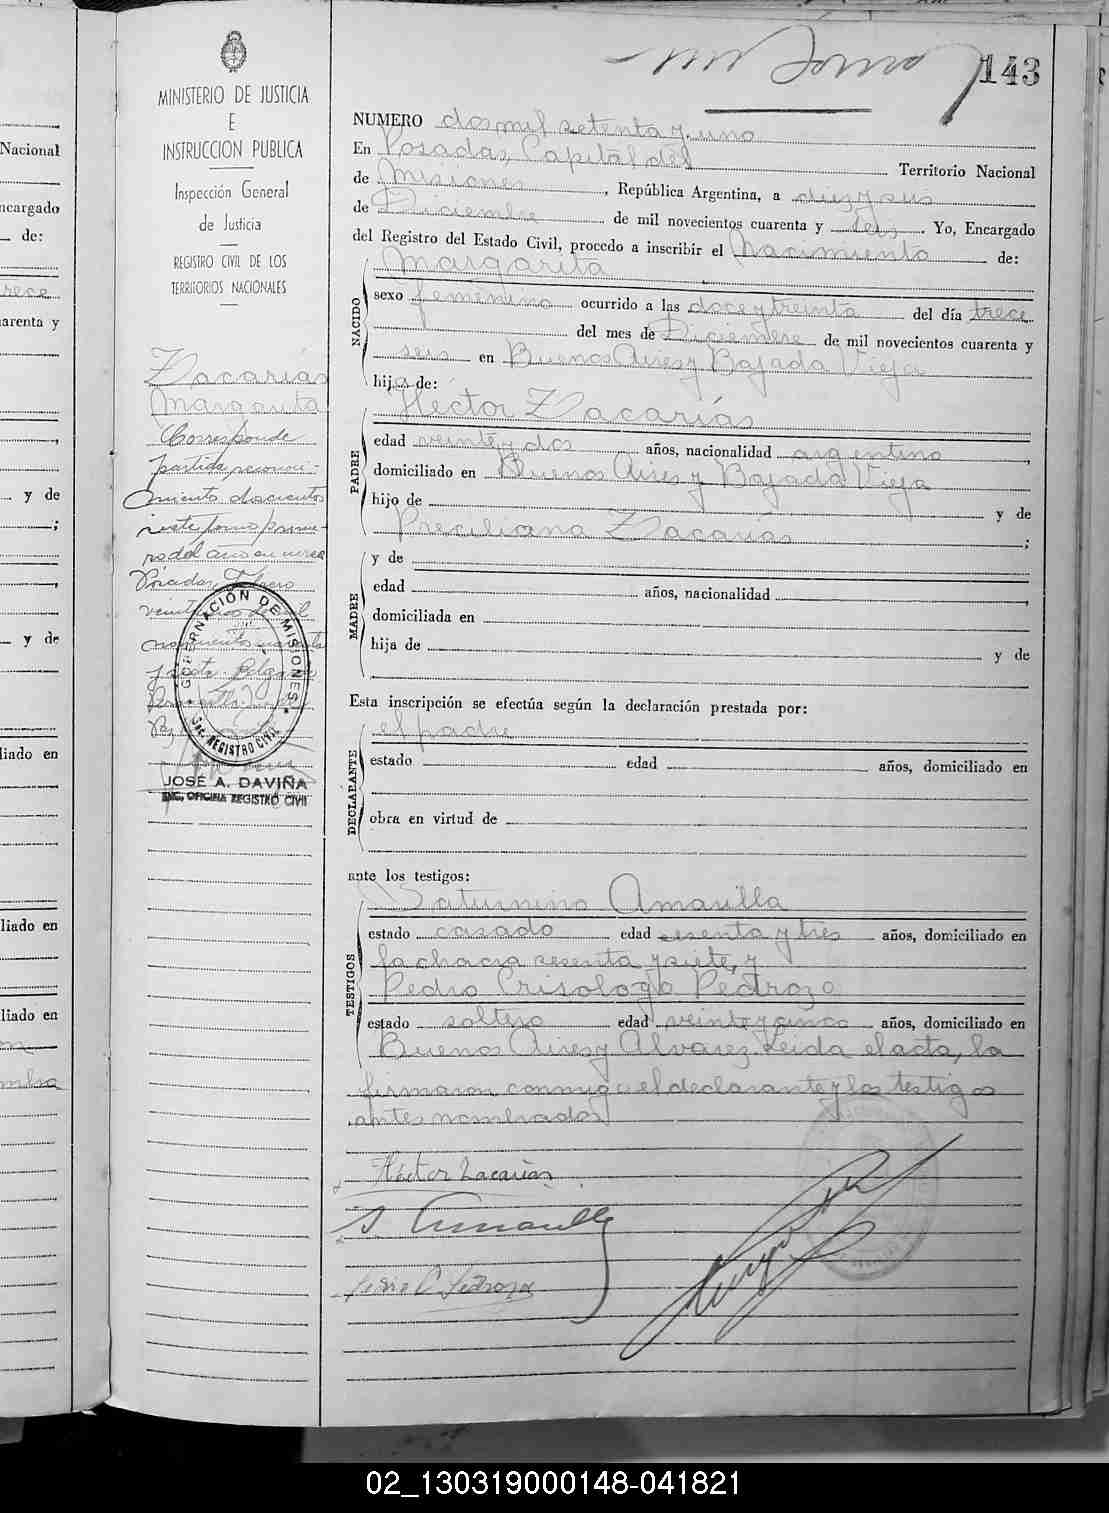 143
MINISTERIO DE JUSTICIA
E
INSTRUCCION PUBLICA
Inspección General
de Justicia
REGISTRO CIVIL DE LOS
TERRITORIOS NACIONALES
Zacarías
Margarita
Corresponde
partida reconoci-
miento doscientos
siete tomo prime-
ro del año en curso
Posadas, Febrero
GOBERNACIÓN DE MISIONES
Sec. REGISTRO CIVIL
JOSÉ A. DAVIÑA
ENC. OFICINA REGISTRO CIVIL
NUMERO dos mil setenta y uno
En Posadas, Capital del Territorio Nacional
de Misiones, República Argentina, a diez y seis
de Diciembre de mil novecientos cuarenta y seis. Yo, Encargado
del Registro del Estado Civil, procedo a inscribir el Nacimiento de:
Margarita
NACIDO
sexo femenino ocurrido a las doce y treinta del día trece
del mes de Diciembre de mil novecientos cuarenta y
seis en Buenos Aires y Bajada Vieja
hija de:
Héctor Zacarías
PADRE
edad veinte y dos años, nacionalidad argentino,
domiciliado en Buenos Aires y Bajada Vieja
hijo de y de
Preciliana Zacarías;
MADRE
y de
edad años, nacionalidad,
domiciliada en
hija de y de
Esta inscripción se efectúa según la declaración prestada por:
DECLARANTE
el padre
estado edad años, domiciliado en
obra en virtud de
ante los testigos:
TESTIGOS
Saturnino Amarilla
estado casado edad sesenta y tres años, domiciliado en
la chacra sesenta y siete, y
Pedro Crisologo Pedrozo
estado soltero edad veinte y cinco años, domiciliado en
Buenos Aires y Alvarez. Leida el acta, la
firmaron conmigo el declarante y los testigos
antes nombrados
Héctor Zacarías
S. Amarilla
Pedro C. Pedrozo
Nacional
ncargado
de:
trece
arenta y
y de
;
y de
liado en
liado en
liado en
02_130319000148-041821